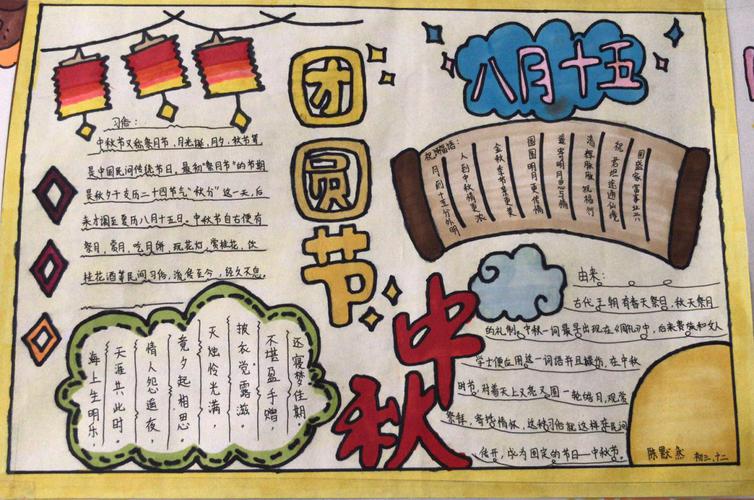 团圆节
八月十五
中秋
习俗：
中秋节又称祭月节、月光诞、月夕、秋节等
是中国民间传统节日。最初“祭月节”的节期
是秋夕干支历二十四节气“秋分”这一天，后
来才调至夏历八月十五日。中秋节自古便有
祭月、赏月、吃月饼、玩花灯、赏桂花、饮
桂花酒等民间习俗，流传至今，经久不息。
海上生明乐，
天涯共此时。
情人怨遥夜，
竟夕起相思
灭烛怜光满，
披衣觉露滋。
不堪盈手赠，
还寝梦佳期。
祝福语：
月到十五分外明
人到中秋情更浓
金秋季节更美
圆圆明月更传情
寄明月思情
清辉脉脉祝福行
祝君坦途通仙境
国盛家富事业兴
由来：
古代王朝有春天祭日，秋天祭月
的礼制，中秋一词最早出现在《周礼》中，后来贵族和文人
学士便应用这一词语并且模仿，在中秋
时节，对着天上又亮又圆一轮皓月，观赏
祭拜，寄情怀，这种习俗就这样在民间
传开，成为固定的节日——中秋节。
陈默然 初三.十二